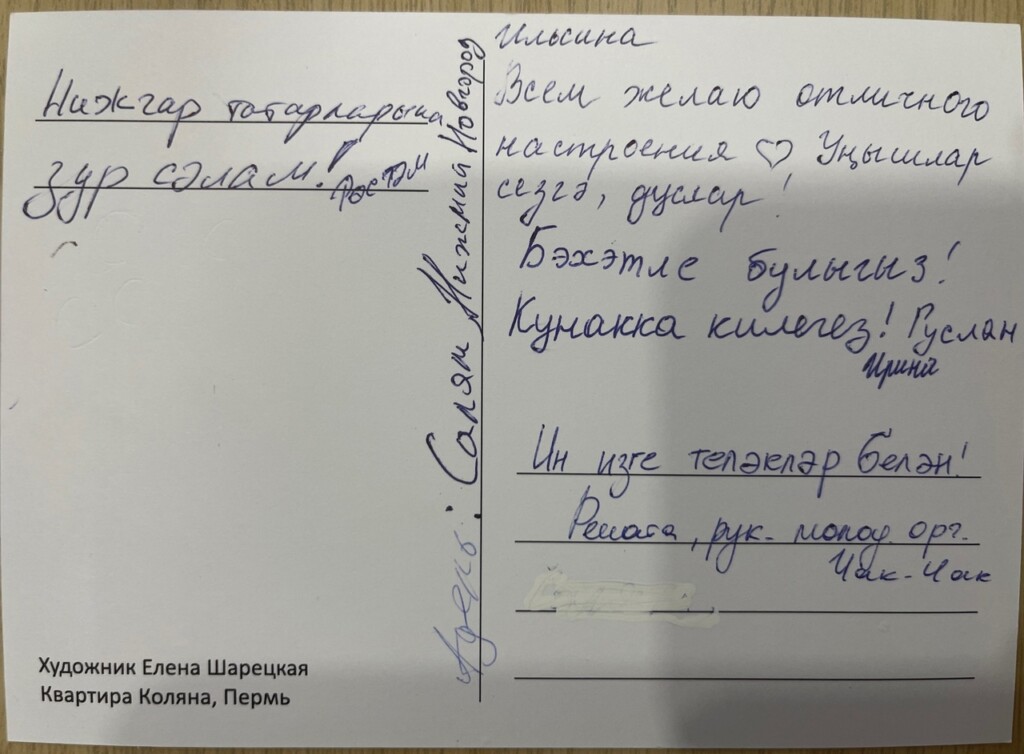 Нижгар татарларына
зур сәлам!
Рөстәм
Салям Нижний Новгород
Ильсина
Всем желаю отличного
настроения ♡ Уңышлар
сезгә, дуслар!
Бәхэтле булыгыз!
Кунакка килегез! Руслан
Ирина
Ин изге теләкләр белән!
Рената, рук. молод. орг.
Чак-Чак
Художник Елена Шарецкая
Квартира Коляна, Пермь